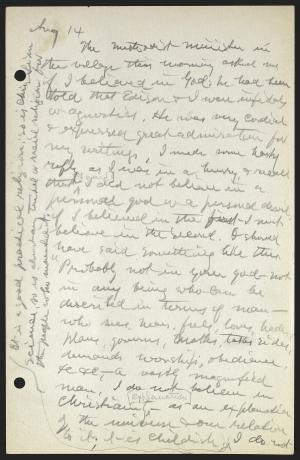 Aug 14
The Methodist minister in
the village this morning asked me
if I believed in God; he had been
told that Edison & I were infidels
or agnostics. He was very cordial
& expressed great admiration for
my writings, I made some hasty
reply as I was in a hurry, & said
that I did not believe in a
personal god or a personal devil.
If I believed in the first I must
believe in the second. I should
have said something like this.
"Probably not in your god - not
in any being who can be
described in terms of man -
who sees, hears, feels, loves, hates,
plans, governs, rides,
demands worship, obedience,
&c &c, - a vastly magnified
man. I do not believe in
Christianity as an explanation
of the universe & our relation
to it; it is childish. I do not
It is a good practical religion: so is Christian
science, so is
the people who